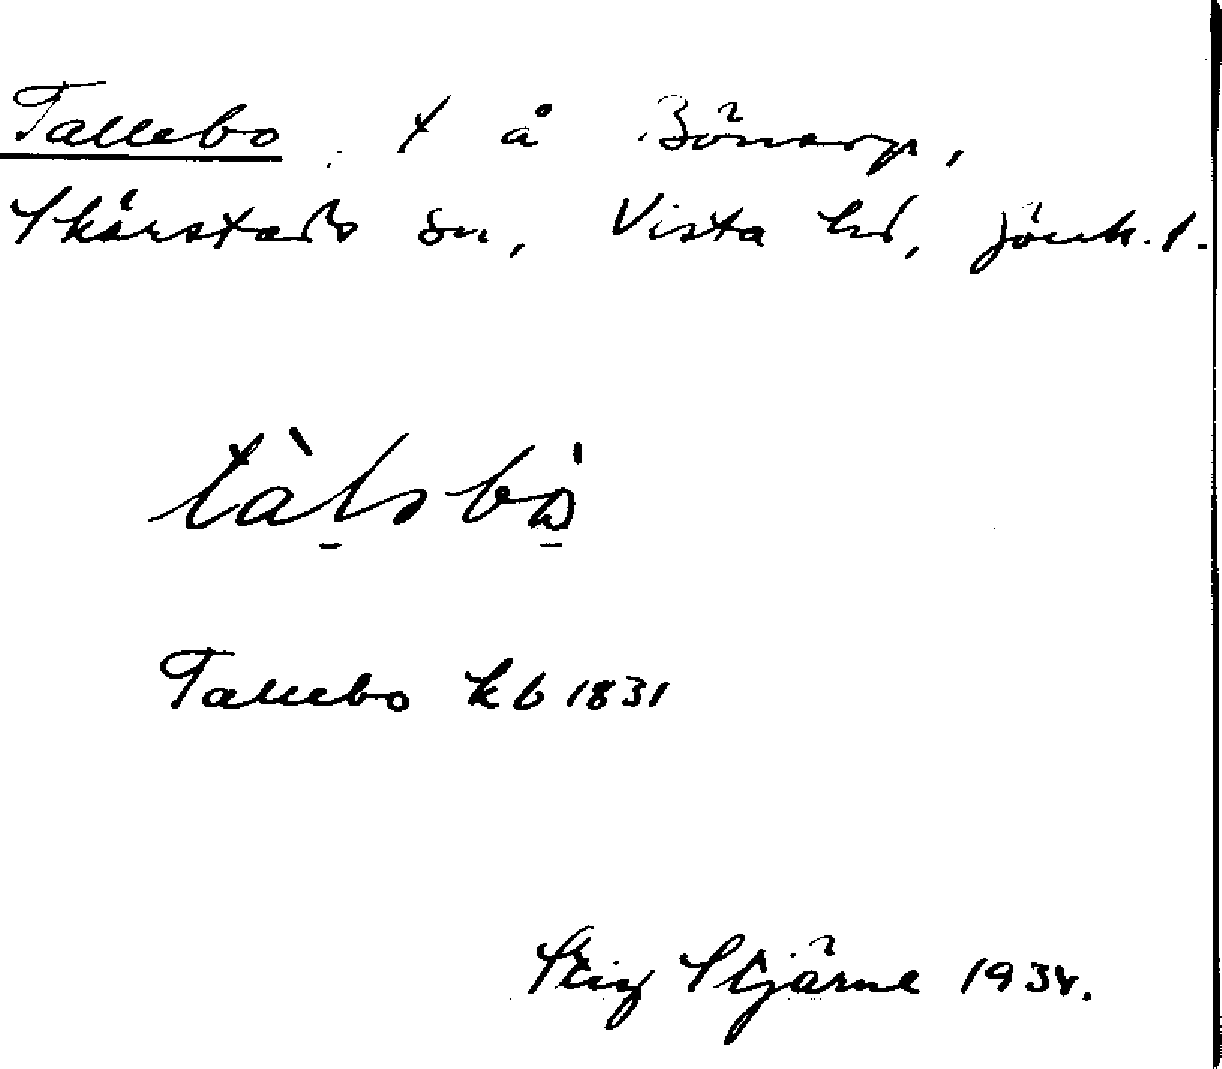 Tallebo, t å Bönarp,
Skärstads sn, Vista hd, Jönk. l.
Tallebo kb 1831
Stig Stjärne 1934.